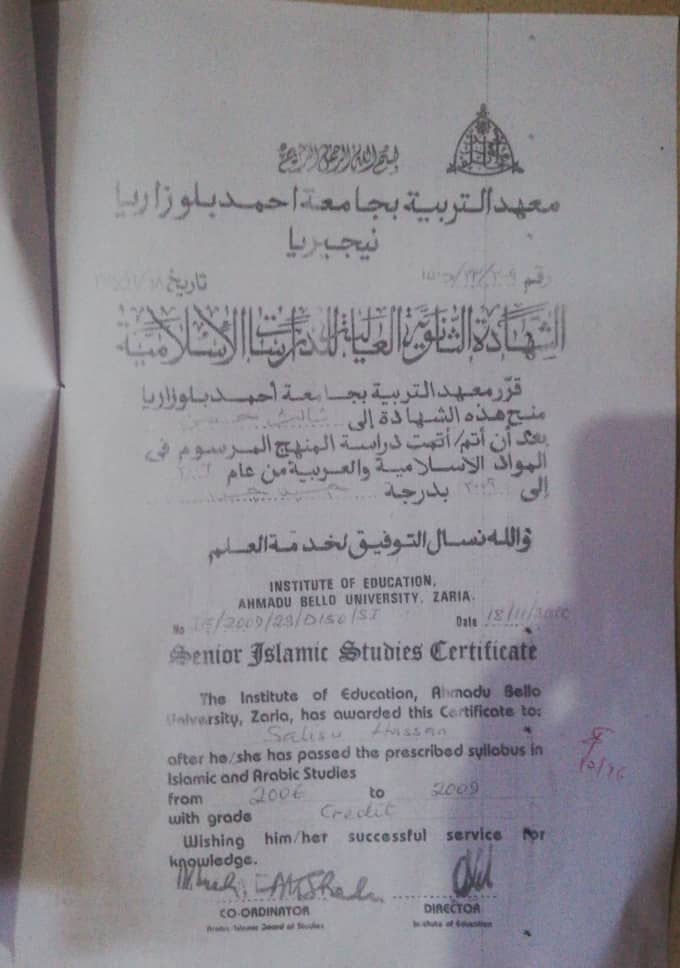 بسم الله الرحمن الرحيم
معهد التربية بجامعة احمد بلو زاريا
نيجيريا
رقم تاريخ
الشهادة الثانوية العالية للدراسات الإسلامية
قرّر معهد التربية بجامعة أحمد بلو زاريا
منح هذه الشهادة إلى
بعد أن أتم/أتمت دراسة المنهج المرسوم في
المواد الاسلامية والعربية من عام
إلى ٢٠٠٩ بدرجة
والله نسال التوفيق لخدمة العلم
INSTITUTE OF EDUCATION,
AHMADU BELLO UNIVERSITY, ZARIA.
No IE/2009/23/0150/SI Date 18/11/
Senior Islamic Studies Certificate
The Institute of Education, Ahmadu Bello
University, Zaria, has awarded this Certificate to:
Salisu Hassan
after he/she has passed the prescribed syllabus in
Islamic and Arabic Studies
from 2006 to 2009
with grade Credit
Wishing him/her successful service for
knowledge.
CO-ORDINATOR DIRECTOR
Arabic/Islamic Board of Studies Institute of Education